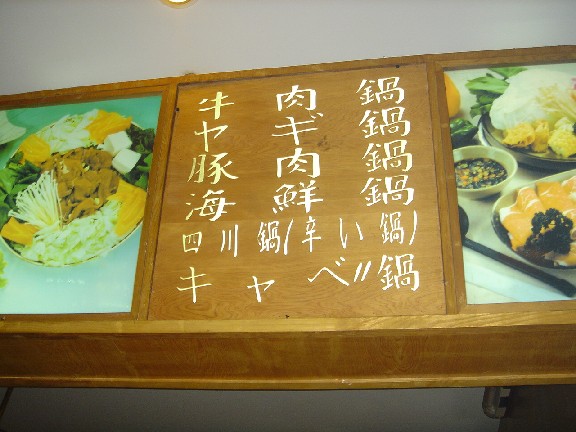 牛肉鍋
ヤギ鍋
豚肉鍋
海鮮鍋
四川鍋(辛い鍋)
キャベ〃鍋